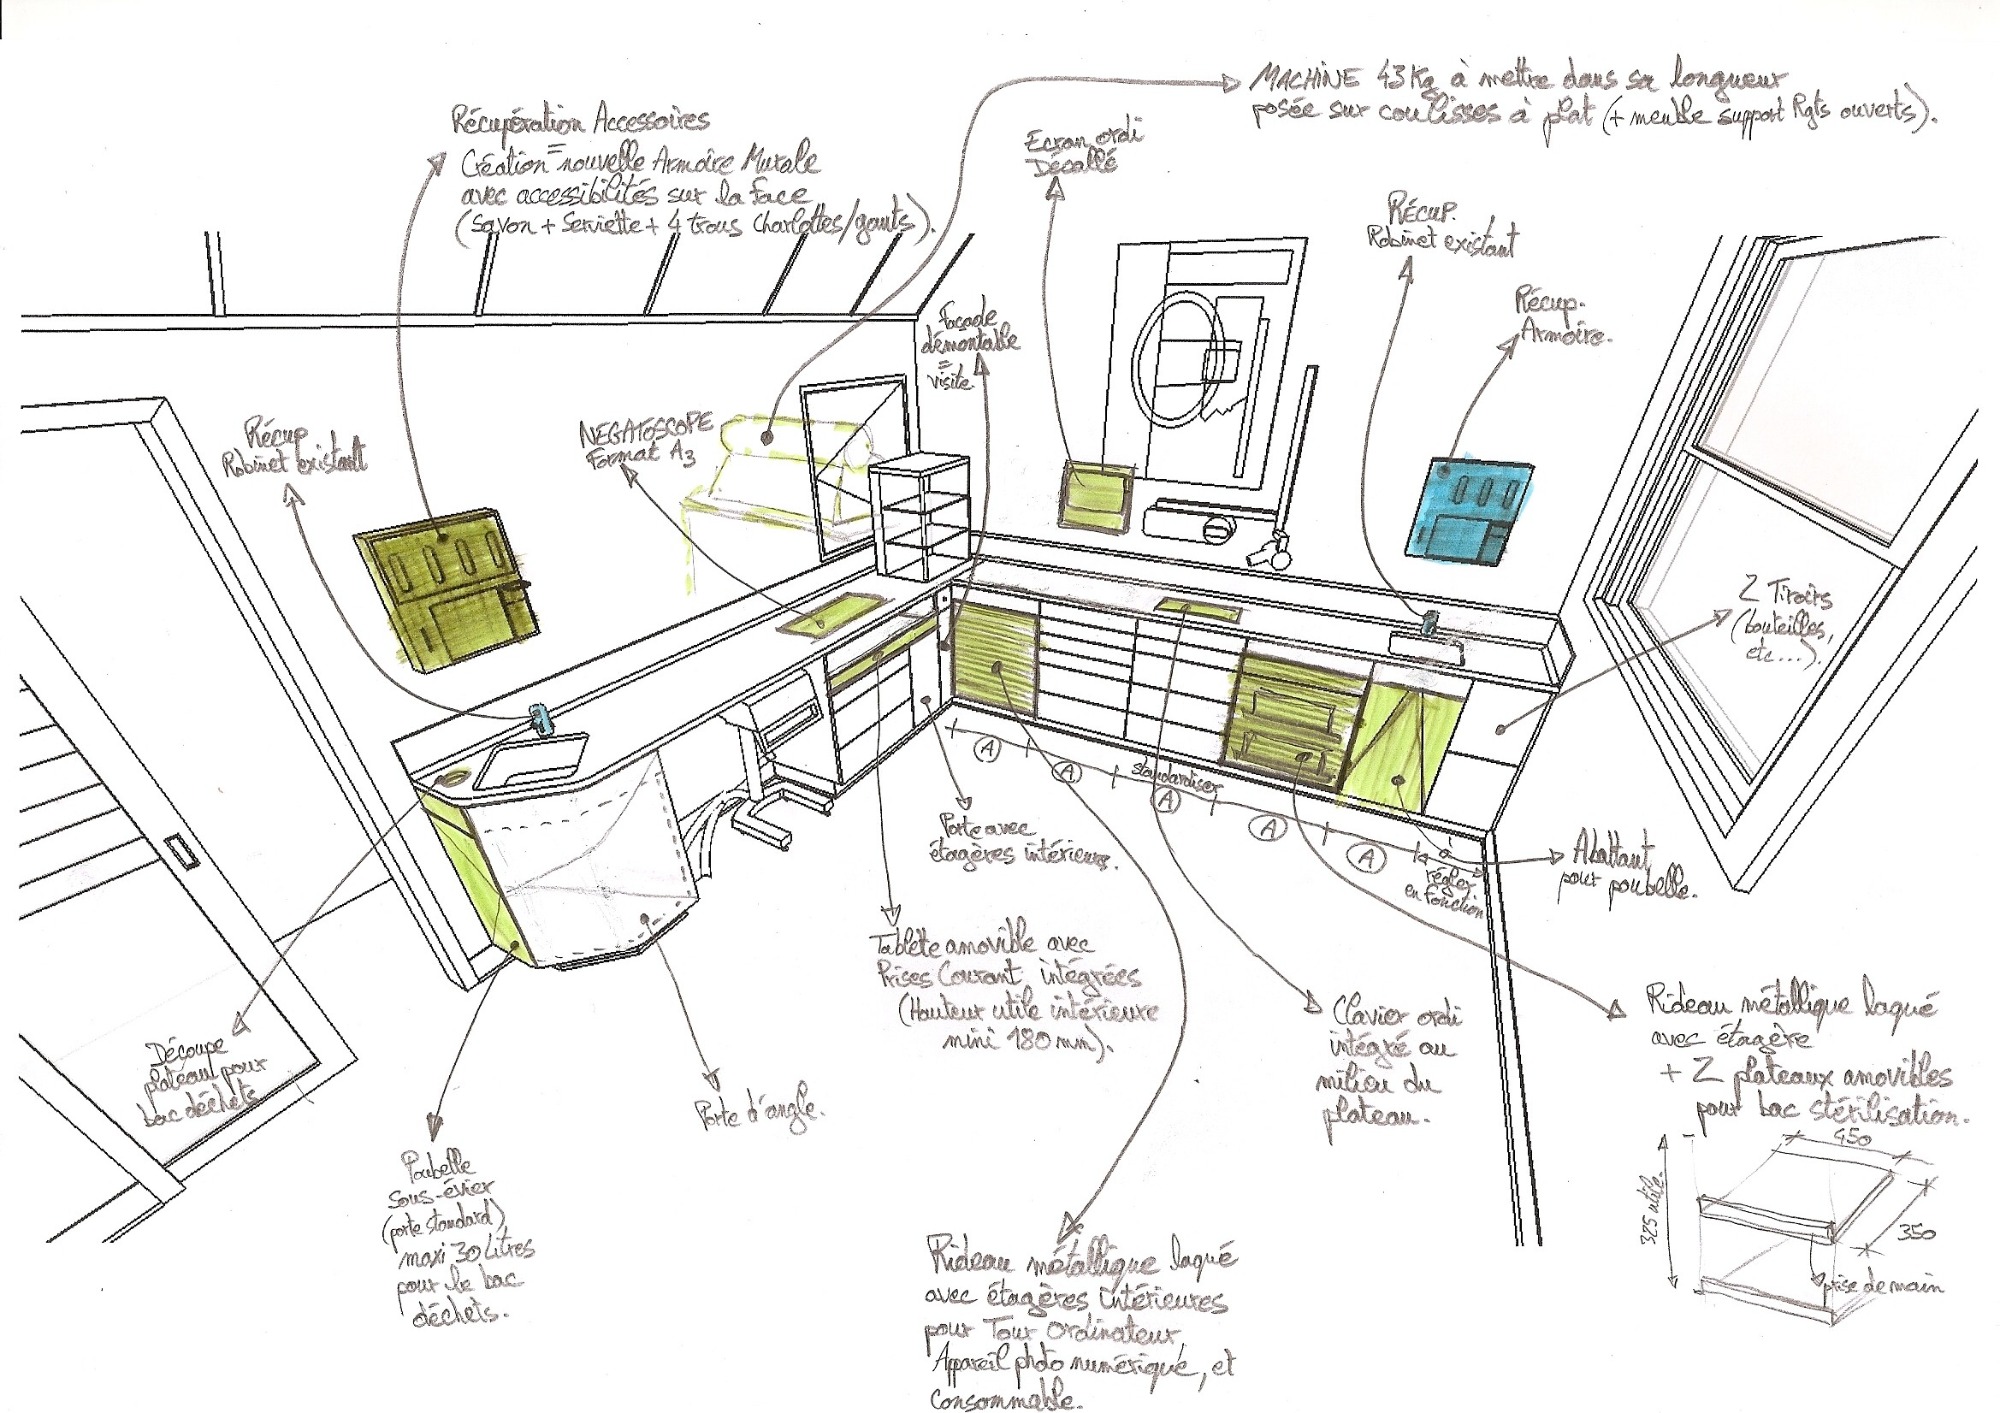 MACHINE 43Kg à mettre dans sa longueur
posée sur coulisses à plat (+ meuble support Rgts ouverts).
Récupération Accessoires
=
Création nouvelle Armoire Murale
avec accessibilités sur la face
(Savon + Serviette + 4 trous Charlottes/gants).
Ecran ordi
Décallé
Récup.
Robinet existant
Récup.
Armoire.
Façade
démontable
=
visite.
Récup
Robinet existant
NEGATOSCOPE
Format A3
2 Tiroirs
(bouteilles,
etc...).
A
A
standardiser
A
A
A
régler
en fonction
Porte avec
étagères intérieures.
Abattant
pour poubelle.
Tablette amovible avec
Prises Courant intégrées
(Hauteur utile intérieure
mini 180 mm).
Clavier ordi
intégré au
milieu du
plateau.
Rideau métallique laqué
avec étagère
+ 2 plateaux amovibles
pour bac stérilisation.
450
325 utile.
350
prise de main
Découpe
plateau pour
bac déchets
Porte d'angle.
Poubelle
sous-évier
(porte standard)
maxi 30 Litres
pour le bac
déchets.
Rideau métallique laqué
avec étagères intérieures
pour Tour Ordinateur,
Appareil photo numérique, et
Consommable.